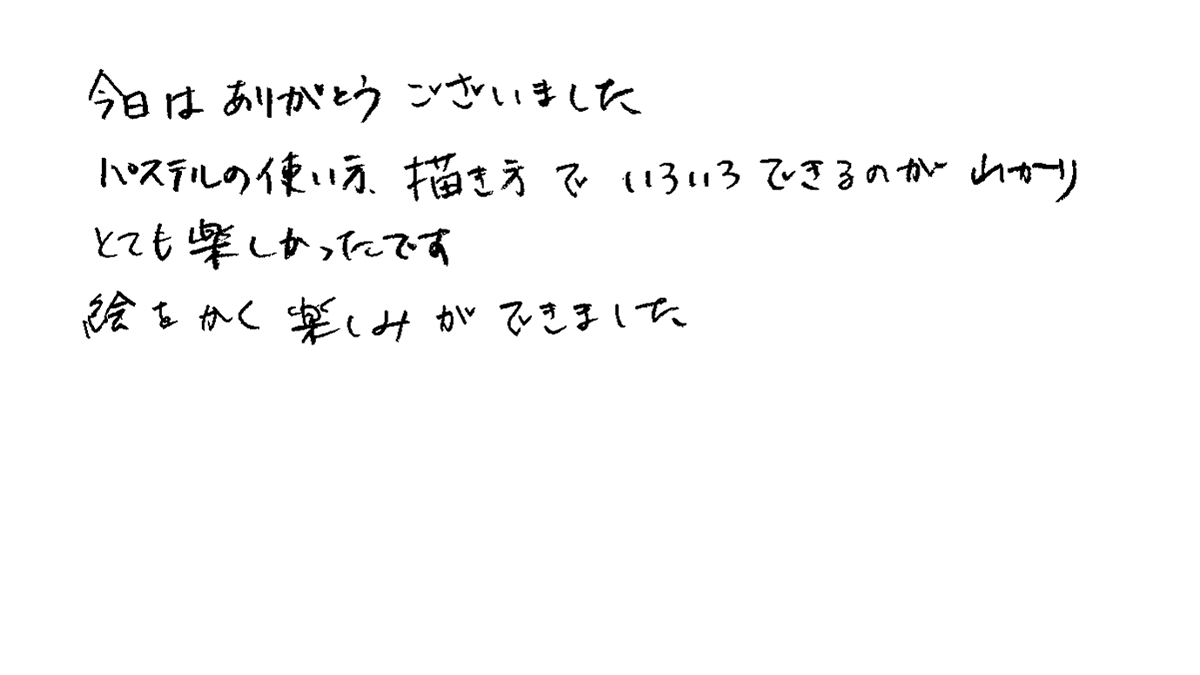 今日はありがとうございました
パステルの使い方、描き方でいろいろできるのがわかり
とても楽しかったです
絵をかく楽しみができました